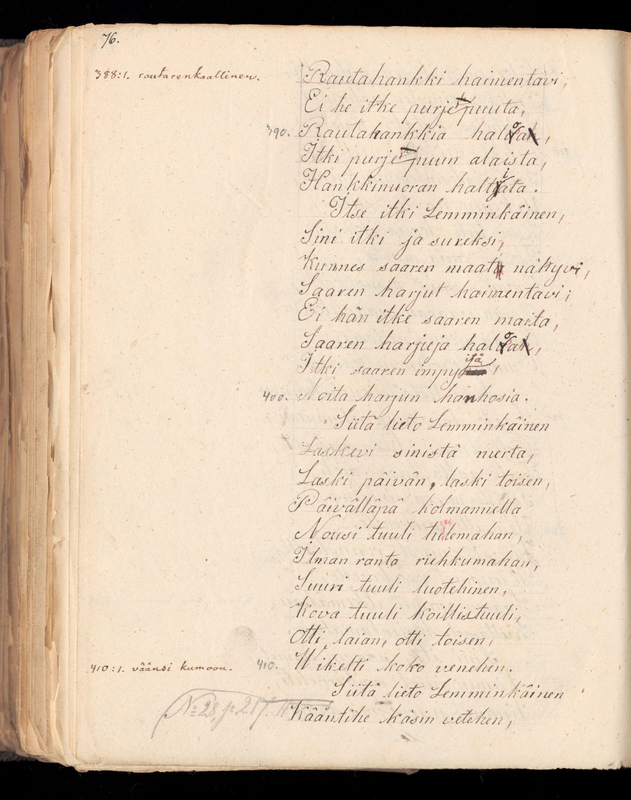 76.
388:1. rautarenkaallinen.
Rautahankki haimentavi,
Ei he itke purjepuuta,
390. Rautahankkia halvan,
Itki purjepuun alaista,
Hankkinuoran haltiata.
Itse itki Lemminkäinen,
Sini itki ja sureksi,
Kunnes saaren maat näkyvi,
Saaren harjut haimentavi;
Ei hän itke saaren maita,
Saaren harjuja halvan,
Itki saaren impyisiä,
400. Noita harjun hanhosia.
Siitä lieto Lemminkäinen
Laskevi sinistä merta,
Laski päivän, laski toisen,
Päivälläpä kolmannella
Nousi tuuli tuulemahan,
Ilman ranta riehkumahan,
Suuri tuuli luotehinen,
Kova tuuli koillistuuli,
Otti laian, otti toisen,
410:1. väänsi kumoon.
410. Wiketti koko venehen.
Siitä lieto Lemminkäinen
No 28, p. 217.
Kääntihe käsin vetehen,